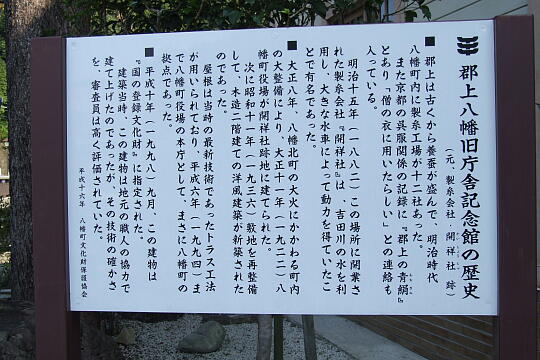 郡上八幡旧庁舎記念館の歴史
(元、製糸会社・開祥社 跡)
■ 郡上は古くから養蚕が盛んで、明治時代
八幡町内に製糸工場が十二社あった。
また京都の呉服関係の記録に『郡上の青絹』
とあり「僧の衣に用いたらしい」との連絡も
入っている。
明治十五年(一八八二)この場所に開業さ
れた製糸会社『開祥社』は、吉田川の水を利
用し、大きな水車によって動力を得ていたこ
とで有名であった。
■ 大正八年、八幡北町の大火にかかわる町内
の大整備により、大正十一年(一九二二)八
幡町役場が開祥社跡地に建てられた。
次に昭和十一年(一九三六)敷地を再整備
して、木造二階建ての洋風建築が新築された
のであった。
屋根は当時の最新技術であったトラス工法
が用いられており、平成六年(一九九四)ま
で八幡町役場の本庁として、まさに八幡町の
拠点であった。
■ 平成十年(一九九八)九月、この建物は
『国の登録文化財』に指定された。
建築当時、この建物は地元の職人の協力で
建て上げたものであったが、その技術の確かさ
を、審査員は高く評価されていた。
平成十六年 八幡町文化財保護協会